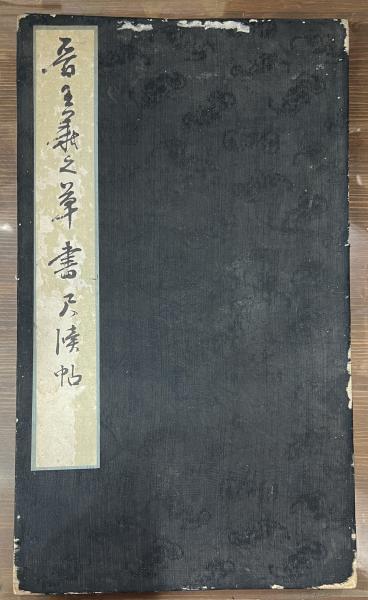 晋王羲之草書尺牘帖